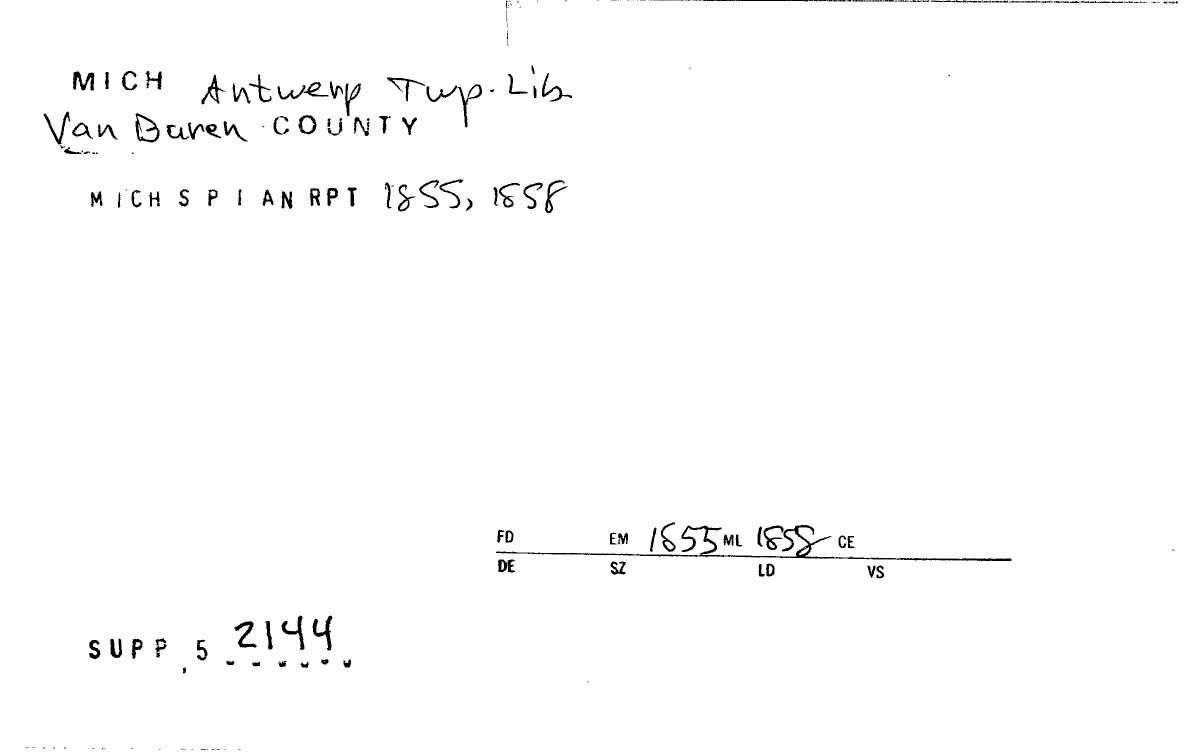 MICH Antwerp Twp. Lib
Van Buren COUNTY
MICH S P I AN RPT 1855, 1858
FD EM 1855 ML 1858 CE
DE SZ LD VS
SUPP, 5 2144